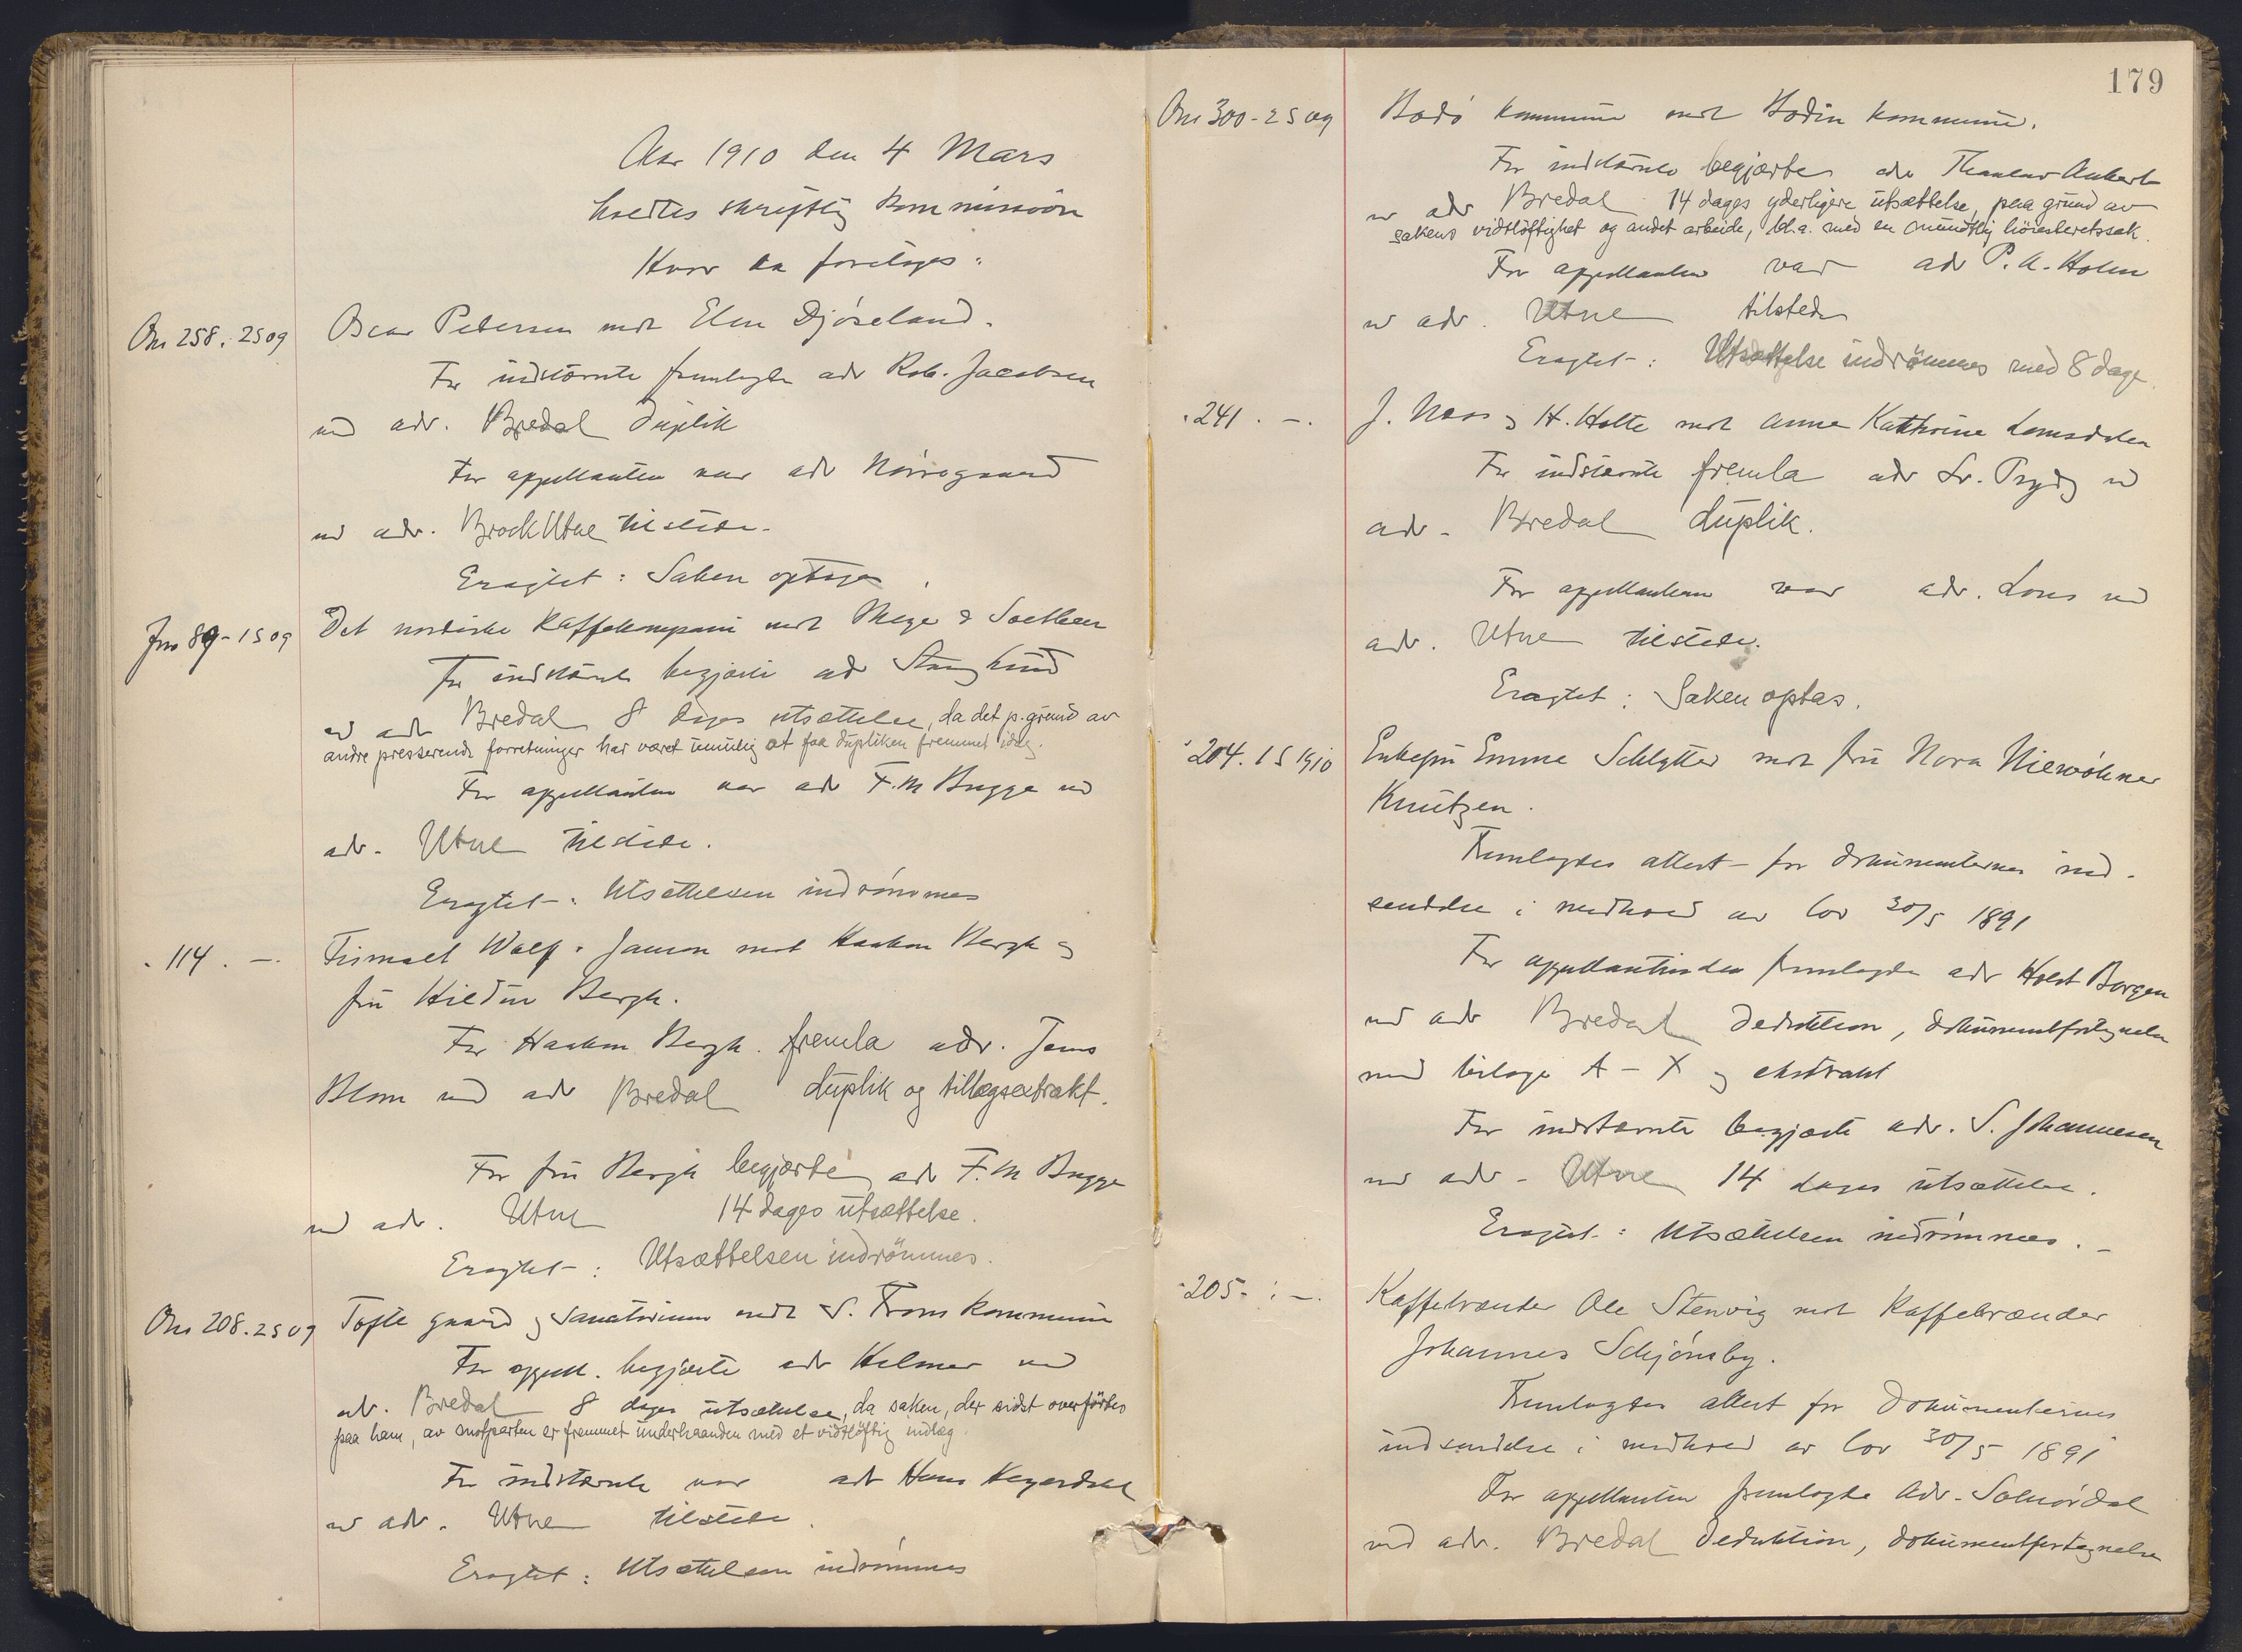 Aar 1910 den 4 Mars
holdtes skriftlig kommission
Hvor da foretoges:
Om 258. 2S 09
Oscar Petersen mot Elen Djöseland.
For indstævnte fremlagde adv Rob. Jacobsen
ved adv. Bredal Duplik
For appellanten var adv Nörregaard
ved adv. Brock Utne tilstede.
Eragtet: Saken optages.
Jm 89 - 1S 09
Det nordiske Kaffekompani mot &
For indstævnte begjærte adv Stang Lund
ved adv Bredal 8 dages utsættelse, da det p. grund av
andre presserende forretninger har været umulig at faa dupliken fremmet idag.
For appellanten var adv F. M Bugge ved
adv. Utne tilstede.
Eragtet: Utsættelsen indrömmes
" 114. -.
Wolf Jansen mot Haakon Bergh og
fru Hildur Bergh.
For Haakon Bergh. fremla adv. Jens
Blom ved adv Bredal duplik og tillægsextrakt.
For fru Bergh begjærte adv F. M Bugge
ved adv. Utne 14 dages utsættelse.
Eragtet: Utsættelsen indrömmes.
Om 208. 2S 09
Tofte gaard og Sanatorium mot S. Fron kommune
For appell. begjærte adv Helmer ved
adv. Bredal 8 dages utsættelse, da saken, der sidst overförtes
paa ham, av motparten er fremmet underhaanden med et vidtlöftig indlæg.
For indstævnte var adv Hans
ved adv. Utne tilstede.
Eragtet: Utsættelsen indrömmes
179
Om 300 - 2S 09
Bodö kommune mot Bodin kommune.
For indstævnte begjærte adv Aubert
ved adv Bredal 14 dages yderligere utsættelse, paa grund av
sakens vidtlöftighet og andet arbeide, bl.a. med en mundtlig höiesteretssak.
For appellanten var adv P. A. Holm
ved adv. Utne tilstede
Eragtet: Utsættelse indrömmes med 8 dage.
" 241. -.
J. Næss og H. Holte mot Anne Kathrine Lomsdalen
For indstævnte fremla adv Fr. Prydz ved
adv. Bredal duplik.
For appellanterne var adv. Lous ved
adv. Utne tilstede.
Eragtet: Saken optas.
" 204. 1S 1910
Enkefru Emma Schlytter mot fru Nora Niewöhner
Knutzen.
Fremlagdes attest for dokumenternes ind-
sendelse i medhold av lov 30/5 1891
For appellantinden fremlagde adv Holst Borgen
ved adv Bredal Deduktion, dokumentfortegnelse
med bilage A - X og ekstrakt
For indstævnte begjærte adv. S. Johannessen
ved adv. Utne 14 dages utsættelse.
Eragtet: Utsættelsen indrömmes. -
" 205 - : -.
Kaffebrænder Ole Stenvig mot Kaffebrænder
Johannes Schjönsby.
Fremlagdes attest for Dokumenternes
indsendelse i medhold av lov 30/5 1891
For appellanten fremlagde Adv. Solnördal
ved adv. Bredal Deduktion, dokumentfortegnelse